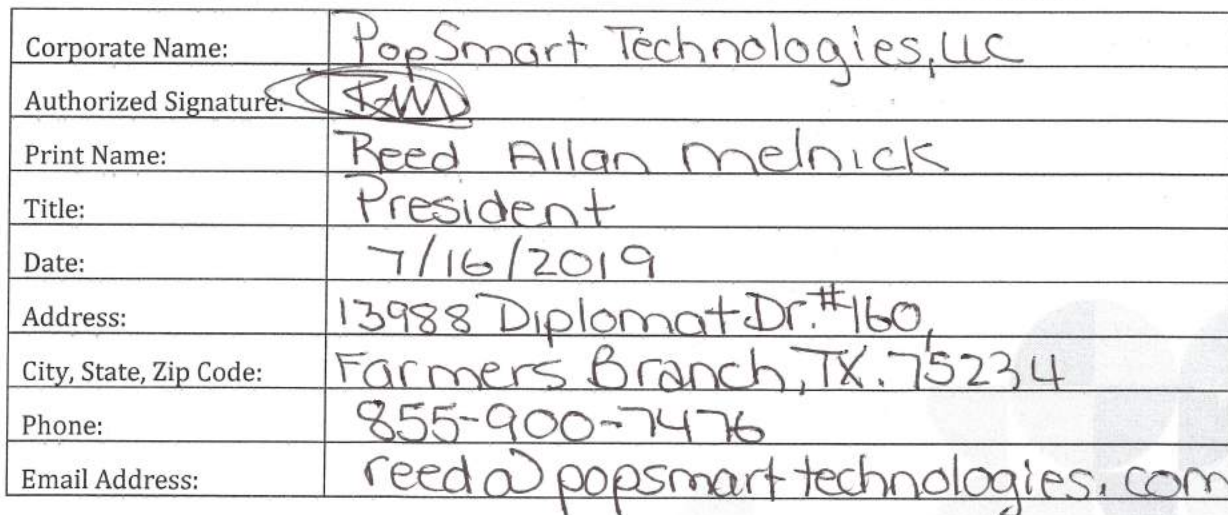 Corporate Name: PopSmart Technologies, LLC
Authorized Signature: RAM
Print Name: Reed Allan Melnick
Title: President
Date: 7/16/2019
Address: 13988 Diplomat Dr. #160,
City, State, Zip Code: Farmers Branch, TX. 75234
Phone: 855-900-7476
Email Address: reed@popsmarttechnologies.com